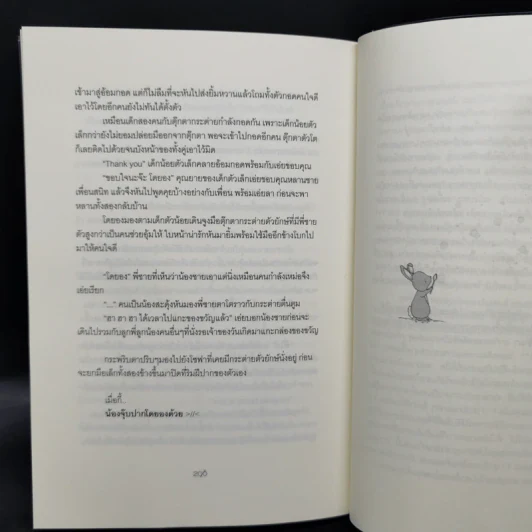 เข้ามาสู่อ้อมกอด แต่ก็ไม่ลืมที่จะหันไปส่งยิ้มหวานแล้วโถมทั้งตัวกอดคนใจดี
เอาไว้โดยอีกคนยังไม่ทันได้ตั้งตัว
เหมือนเด็กสองคนกับตุ๊กตากระต่ายกำลังกอดกัน เพราะเด็กน้อยตัว
เล็กกว่ายังไม่ยอมปล่อยมือออกจากตุ๊กตา พอจะเข้าไปกอดอีกคน ตุ๊กตาตัวโต
ก็เลยติดไปด้วยจนบังหน้าของทั้งคู่เอาไว้มิด
"Thank you" เด็กน้อยตัวเล็กคลายอ้อมกอดพร้อมกับเอ่ยขอบคุณ
"ขอบใจนะจ๊ะ โดยอง" คุณยายของเด็กตัวเล็กเอ่ยขอบคุณหลานชาย
เพื่อนสนิท แล้วจึงหันไปพูดคุยบ้างอย่างกับเพื่อน พร้อมเอ่ยลา ก่อนจะพา
หลานทั้งสองกลับบ้าน
โดยองมองตามเด็กตัวน้อยเดินจูงมือตุ๊กตากระต่ายตัวยักษ์ที่มีพี่ชาย
ตัวสูงกว่าเป็นคนช่วยอุ้มให้ ใบหน้าน่ารักหันมายิ้มพร้อมใช้มืออีกข้างโบกไป
มาให้คนใจดี
"โดยอง" พี่ชายที่เห็นว่าน้องชายเอาแต่นิ่งเหมือนคนกำลังเหม่อจึง
เอ่ยเรียก
"..." คนเป็นน้องสะดุ้งหันมองพี่ชายตาโตราวกับกระต่ายตื่นตูม
"ฮา ฮา ฮา ได้เวลาไปแกะของขวัญแล้ว" เอ่ยบอกน้องชายก่อนจะ
เดินไปรวมกับลูกพี่ลูกน้องคนอื่นๆที่นั่งรอเจ้าของวันเกิดมาแกะกล่องของขวัญ
กระพริบตาปริบๆมองไปยังโซฟาที่เคยมีกระต่ายตัวยักษ์นั่งอยู่ ก่อน
จะยกมือเล็กทั้งสองข้างขึ้นมาปิดที่ริมฝีปากของตัวเอง
เมื่อกี้..
น้องจุ๊บปากโดยองด้วย >//<